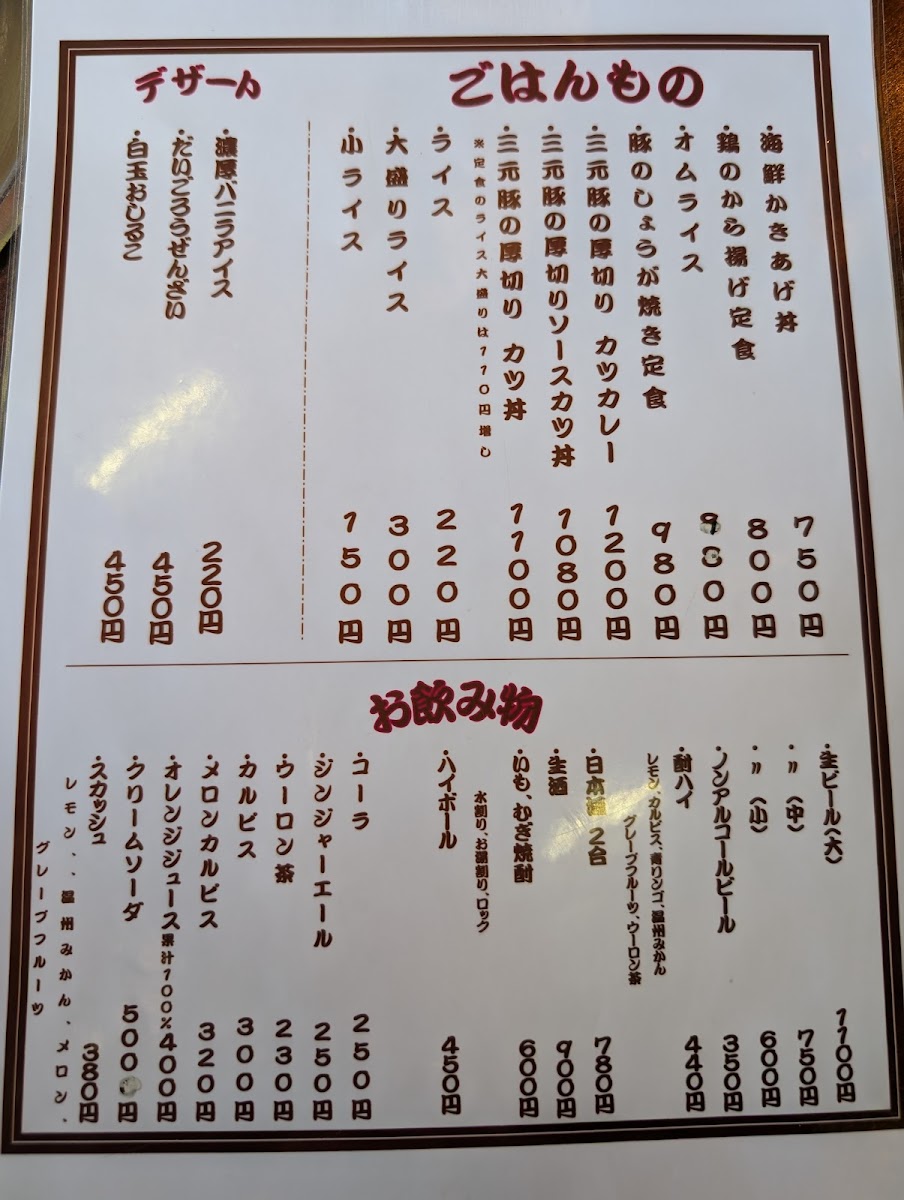 ごはんもの
・海鮮かきあげ丼 750円
・鶏のから揚げ定食 800円
・オムライス 980円
・豚のしょうが焼き定食 980円
・三元豚の厚切り カツカレー 1200円
・三元豚の厚切りソースカツ丼 1080円
・三元豚の厚切り カツ丼 1100円
※定食のライス大盛りは110円増し
・ライス 220円
・大盛りライス 300円
・小ライス 150円
デザート
・濃厚バニラアイス 220円
・だいごろうぜんざい 450円
・白玉おしるこ 450円
お飲み物
・生ビール(大) 1100円
・〃 (中) 750円
・〃 (小) 600円
・ノンアルコールビール 350円
・酎ハイ 440円
レモン、カルピス、青リンゴ、温州みかん
グレープフルーツ、ウーロン茶
・日本酒 2合 780円
・生酒 900円
・いも、むぎ焼酎 600円
水割り、お湯割り、ロック
・ハイボール 450円
・コーラ 250円
・ジンジャーエール 250円
・ウーロン茶 230円
・カルピス 300円
・メロンカルピス 320円
・オレンジジュース果汁100% 400円
・クリームソーダ 500円
・スカッシュ 380円
レモン、温州みかん、メロン、
グレープフルーツ